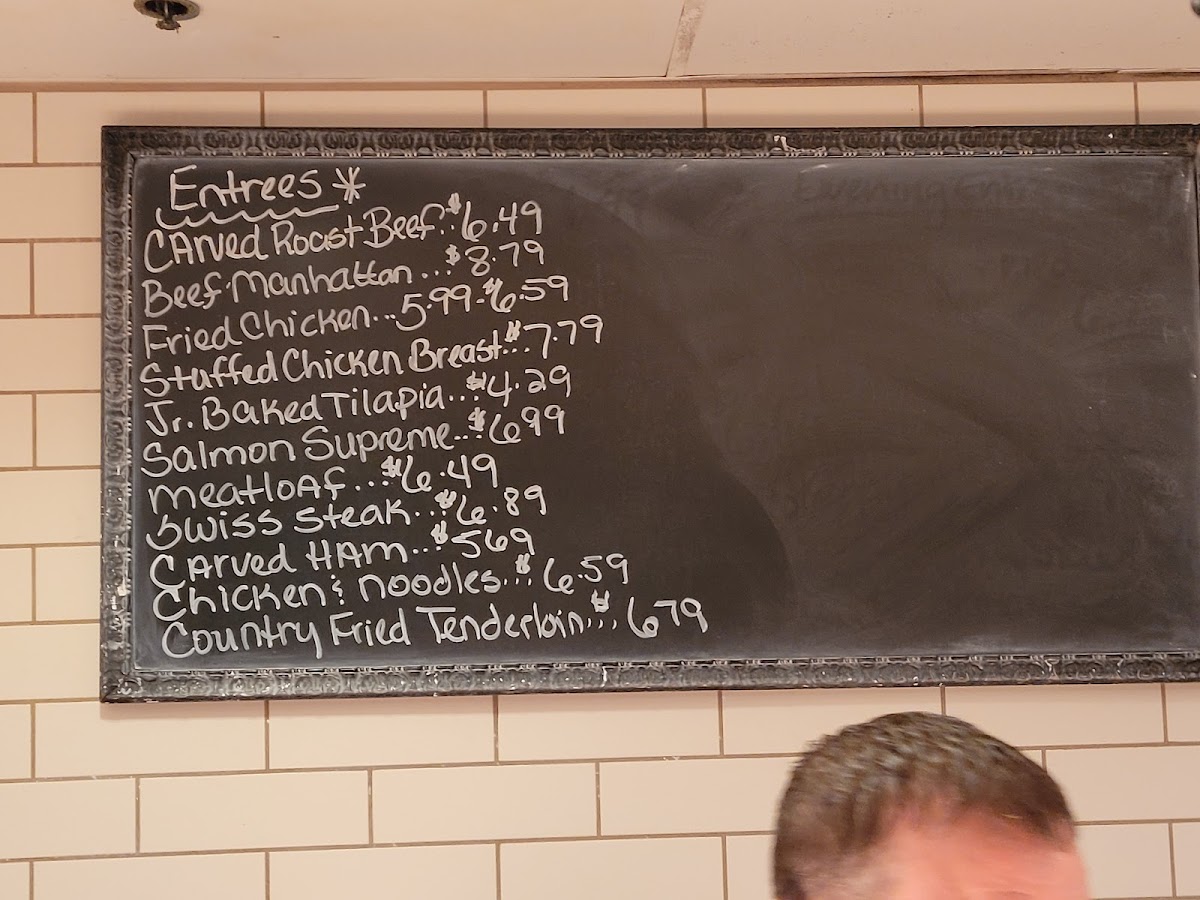 Entrees *
CArved Roast Beef..$6.49
Beef Manhattan...$8.79
Fried Chicken...5.99-$6.59
Stuffed Chicken Breast...$7.79
Jr. Baked Tilapia...$4.29
Salmon Supreme...$6.99
meatloAf...$6.49
Swiss Steak...$6.89
CArved HAm...$569
Chicken & noodles...$6.59
Country Fried Tenderloin...$679
Evening Ent